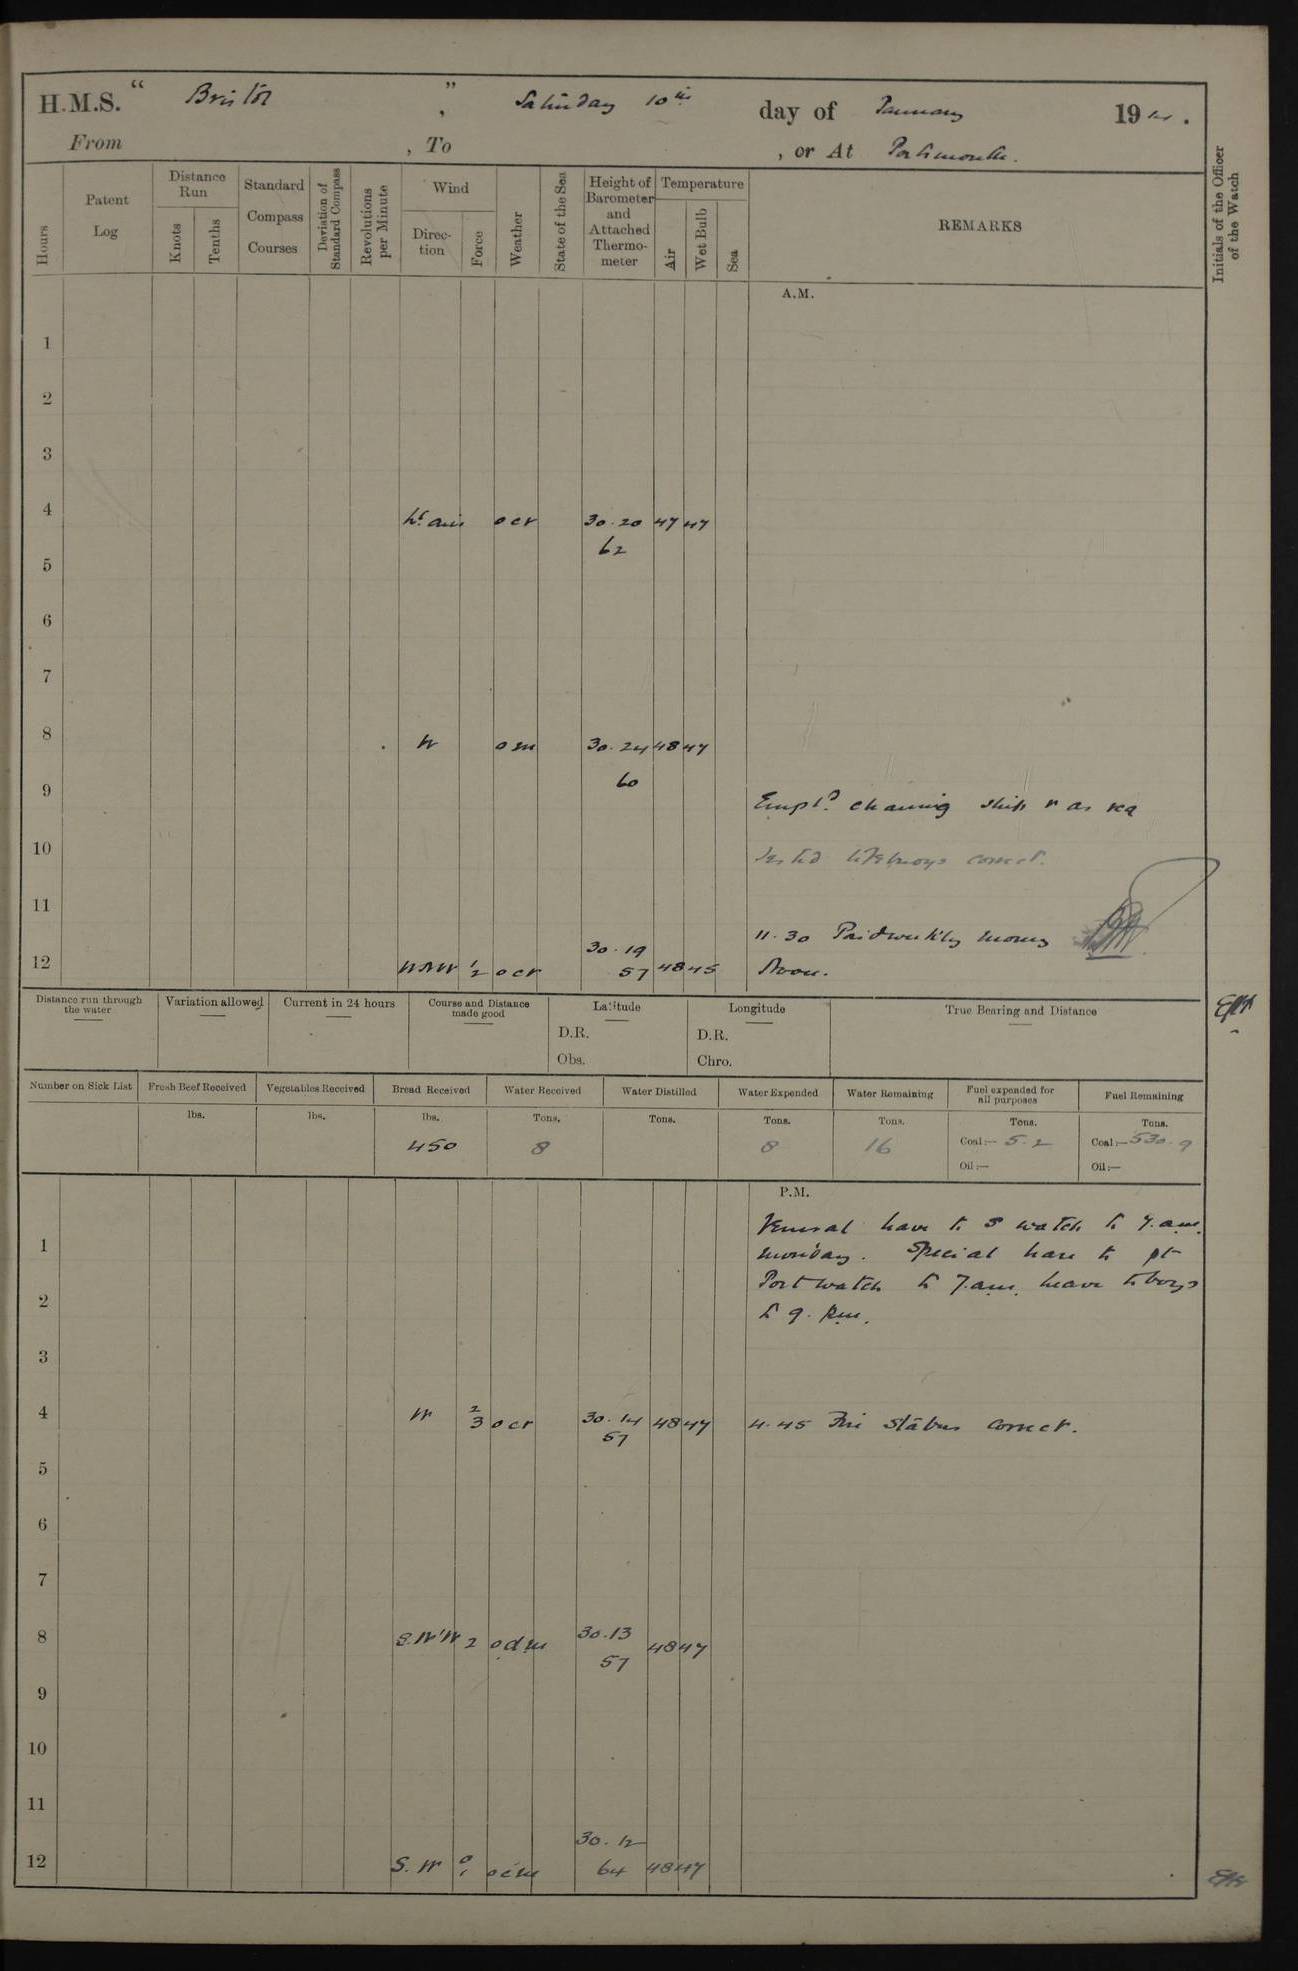 H.M.S. "Bristol", Saturday 10th day of January 1914.
From , To , or At Portsmouth.
Hours
Patent Log
Distance Run
Knots
Tenths
Standard Compass Courses
Deviation of Standard Compass
Revolutions per Minute
Wind
Direction
Force
Weather
State of the Sea
Height of Barometer and Attached Thermometer
Temperature
Air
Wet Bulb
Sea
REMARKS
Initials of the Officer of the Watch
A.M.
1
2
3
4 Lt airs ocr 30.20 47 47
62
5
6
7
8 W om 30.24 48 47
60
9
Empld. cleaning ship & as req
10
Tested lifebuoys correct.
11
11.30 Paid weekly money
30.19
12 WNW 1/2 ocr 57 48 45 Noon.
Distance run through the water
Variation allowed
Current in 24 hours
Course and Distance made good
Latitude
D.R.
Obs.
Longitude
D.R.
Chro.
True Bearing and Distance
Number on Sick List
Fresh Beef Received
lbs.
Vegetables Received
lbs.
Bread Received
lbs.
450
Water Received
Tons.
8
Water Distilled
Tons.
Water Expended
Tons.
8
Water Remaining
Tons.
16
Fuel expended for all purposes
Tons.
Coal:— 5.2
Oil:—
Fuel Remaining
Tons.
Coal:— 530.9
Oil:—
P.M.
General leave to S watch to 7.am.
1
Monday. Special leave to pt
Port watch to 7.am. leave to boys
2
to 9.pm.
3
4 W 2/3 ocr 30.14 48 47 4.45 Fire Stations correct.
57
5
6
7
8 S.W'W 2 odm 30.13 48 47
57
9
10
11
30.12
12 S.W 0/1 ocm 64 48 47